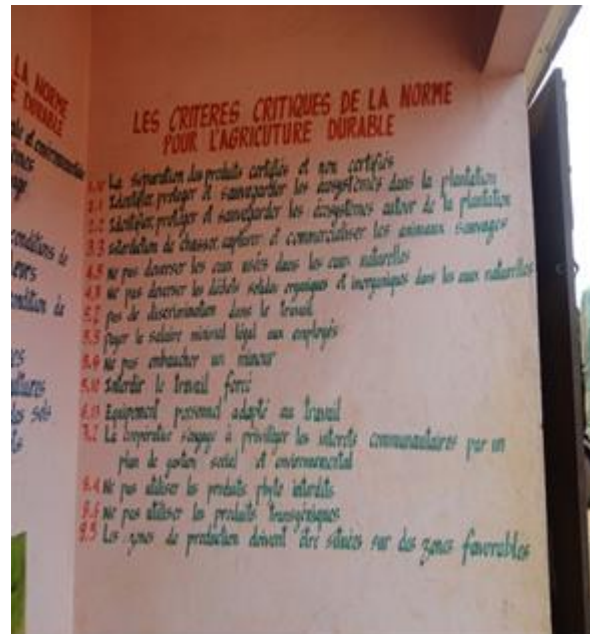 LA NORME
DURABLE
et environnement
conditions de
LES CRITERES CRITIQUES DE LA NORME
POUR L'AGRICUTURE DURABLE
La séparation des produits certifiés et non certifiés
2.1 Identifier, proteger et sauvegarder les écosystèmes dans la plantation
2.2 Identifier, protéger et sauvegarder les écosystèmes autour de la plantation
3.3 interdiction de chasser, capturer et commercialiser les animaux sauvages
4.5 ne pas deverser les eaux usés dans les eaux naturelles
ne pas deverser les déchets solides organiques et inorganiques dans les eaux naturelles
5.2 pas de discrimination dans le travail
5.5 payer le salaire minimal légal aux employés
ne pas embaucher un mineur
5.10 Interdir le travail forcé
Equipement personnel adapté au travail
7.2 La cooperative s'engage à privilégier les interets communautaires par un
plan de gestion social et environnemental
8.4 ne pas utiliser les produits phyto interdits
ne pas utiliser les produits transgéniques
9.5 Les zones de production doivent être situées sur des zones favorables